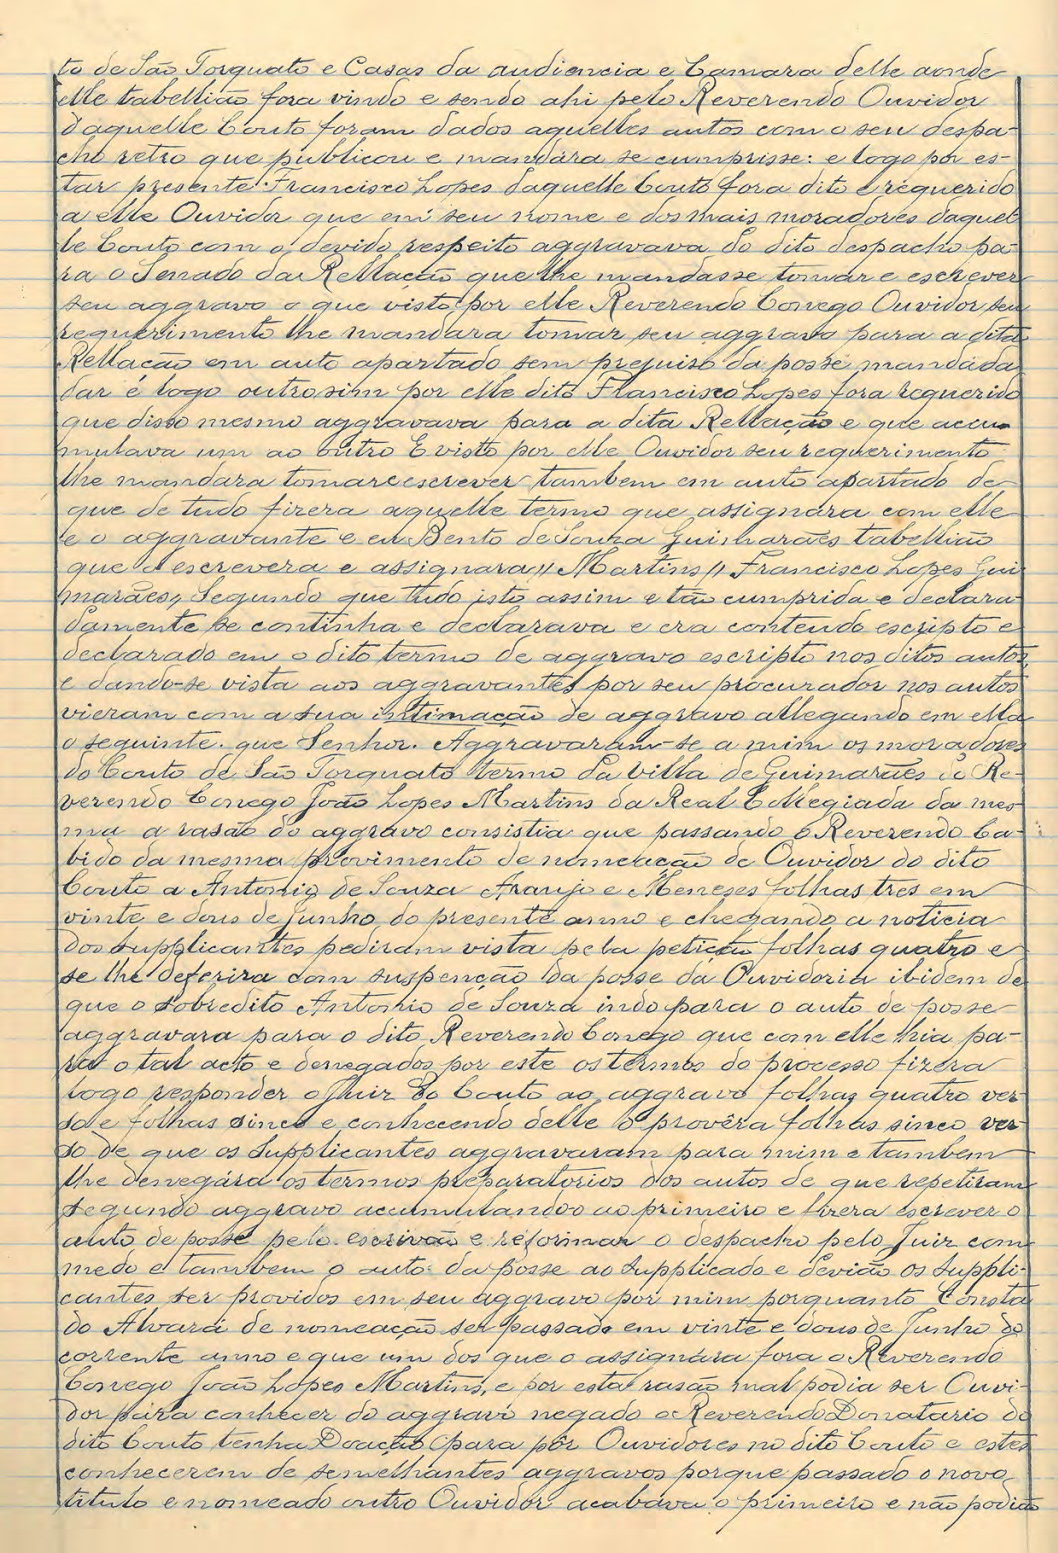 to de São Torquato e Casas da audiencia e Camara delle aonde
elle tabellião fora vindo e sendo ahi pelo Reverendo Ouvidor
daquelle Couto foram dados aquelles autos com o seu despa-
cho retro que publicou e mandára se cumprisse: e logo por es-
tar presente Francisco Lopes daquelle Couto fora dito e requerido
a elle Ouvidor que em seu nome e dos mais moradores daquel
le Couto com o devido respeito aggravava do dito despacho pa-
ra o Senado da Rellação que lhe mandasse tomar e escrever
seu aggravo o que visto por elle Reverendo Conego Ouvidor seu
requerimento lhe mandara tomar seu aggravo para a dita
Rellação em auto apartado sem prejuiso da posse mandada
dar e logo outrosim por elle dito Francisco Lopes fora requerido
que disso mesmo aggravava para a dita Rellação e que accu-
mulava um ao outro E visto por elle Ouvidor seu requerimento
lhe mandara tomar e escrever tambem em auto apartado de
que de tudo fizera aquelle termo que assignára com elle
e o aggravante e eu Bento de Souza Guimarães tabellião
que o escrevera e assignara // Martins // Francisco Lopes Gui
marães // Segundo que tudo isto assim e tão cumprida e declara-
damente se continha e declarava e era conteudo escripto e
declarado em o dito termo de aggravo escripto nos ditos autos
e dando-se vista aos aggravantes por seu procurador nos autos
vieram com a sua intimação de aggravo allegando em ella
o seguinte. que Senhor. Aggravaram-se a mim os moradores
do Couto de São Torquato termo da villa de Guimarães do Re-
verendo Conego João Lopes Martins da Real Collegiada da mes-
ma a rasão do aggravo consistia que passando o Reverendo Ca-
bido da mesma provimento de nomeação de Ouvidor do dito
Couto a Antonio de Souza Araujo e Meneses folhas tres em
vinte e dous de Junho do presente anno e chegando a noticia
dos Supplicantes pediram vista pela petição folhas quatro e
se lhe deferira com suspenção da posse da Ouvidoria ibidem de
que o sobredito Antonio de Souza indo para o auto de posse
aggravara para o dito Reverendo Conego que com elle hia pa-
ra o tal acto e denegados por este os termos do processo fizera
logo responder o Juiz do Couto ao aggravo folhas quatro ver-
so e folhas sinco e conhecendo delle o provêra folhas sinco ver-
so de que os Supplicantes aggravaram para mim e tambem
lhe denegára os termos preparatorios dos autos de que repetiram
segundo aggravo accumulando-o ao primeiro e fizera escrever o
auto de posse pelo escrivão e reformar o despacho pelo Juiz com
medo e tambem o auto da posse ao Supplicado e devião os Suppli-
cantes ser providos em seu aggravo por mim porquanto Consta
do Alvará de nomeação ser passado em vinte e dous de Junho do
corrente anno e que um dos que o assignára fora o Reverendo
Conego João Lopes Martins, e por esta rasão mal podia ser Ouvi-
dor pára conhecer do aggravo negado o Reverendo Donatario do
dito Couto tenha Doação para pôr Ouvidores no dito Couto e estes
conhecerem de semelhantes aggravos porque passado o novo
titulo e nomeado outro Ouvidor acabava o primeiro e não podia